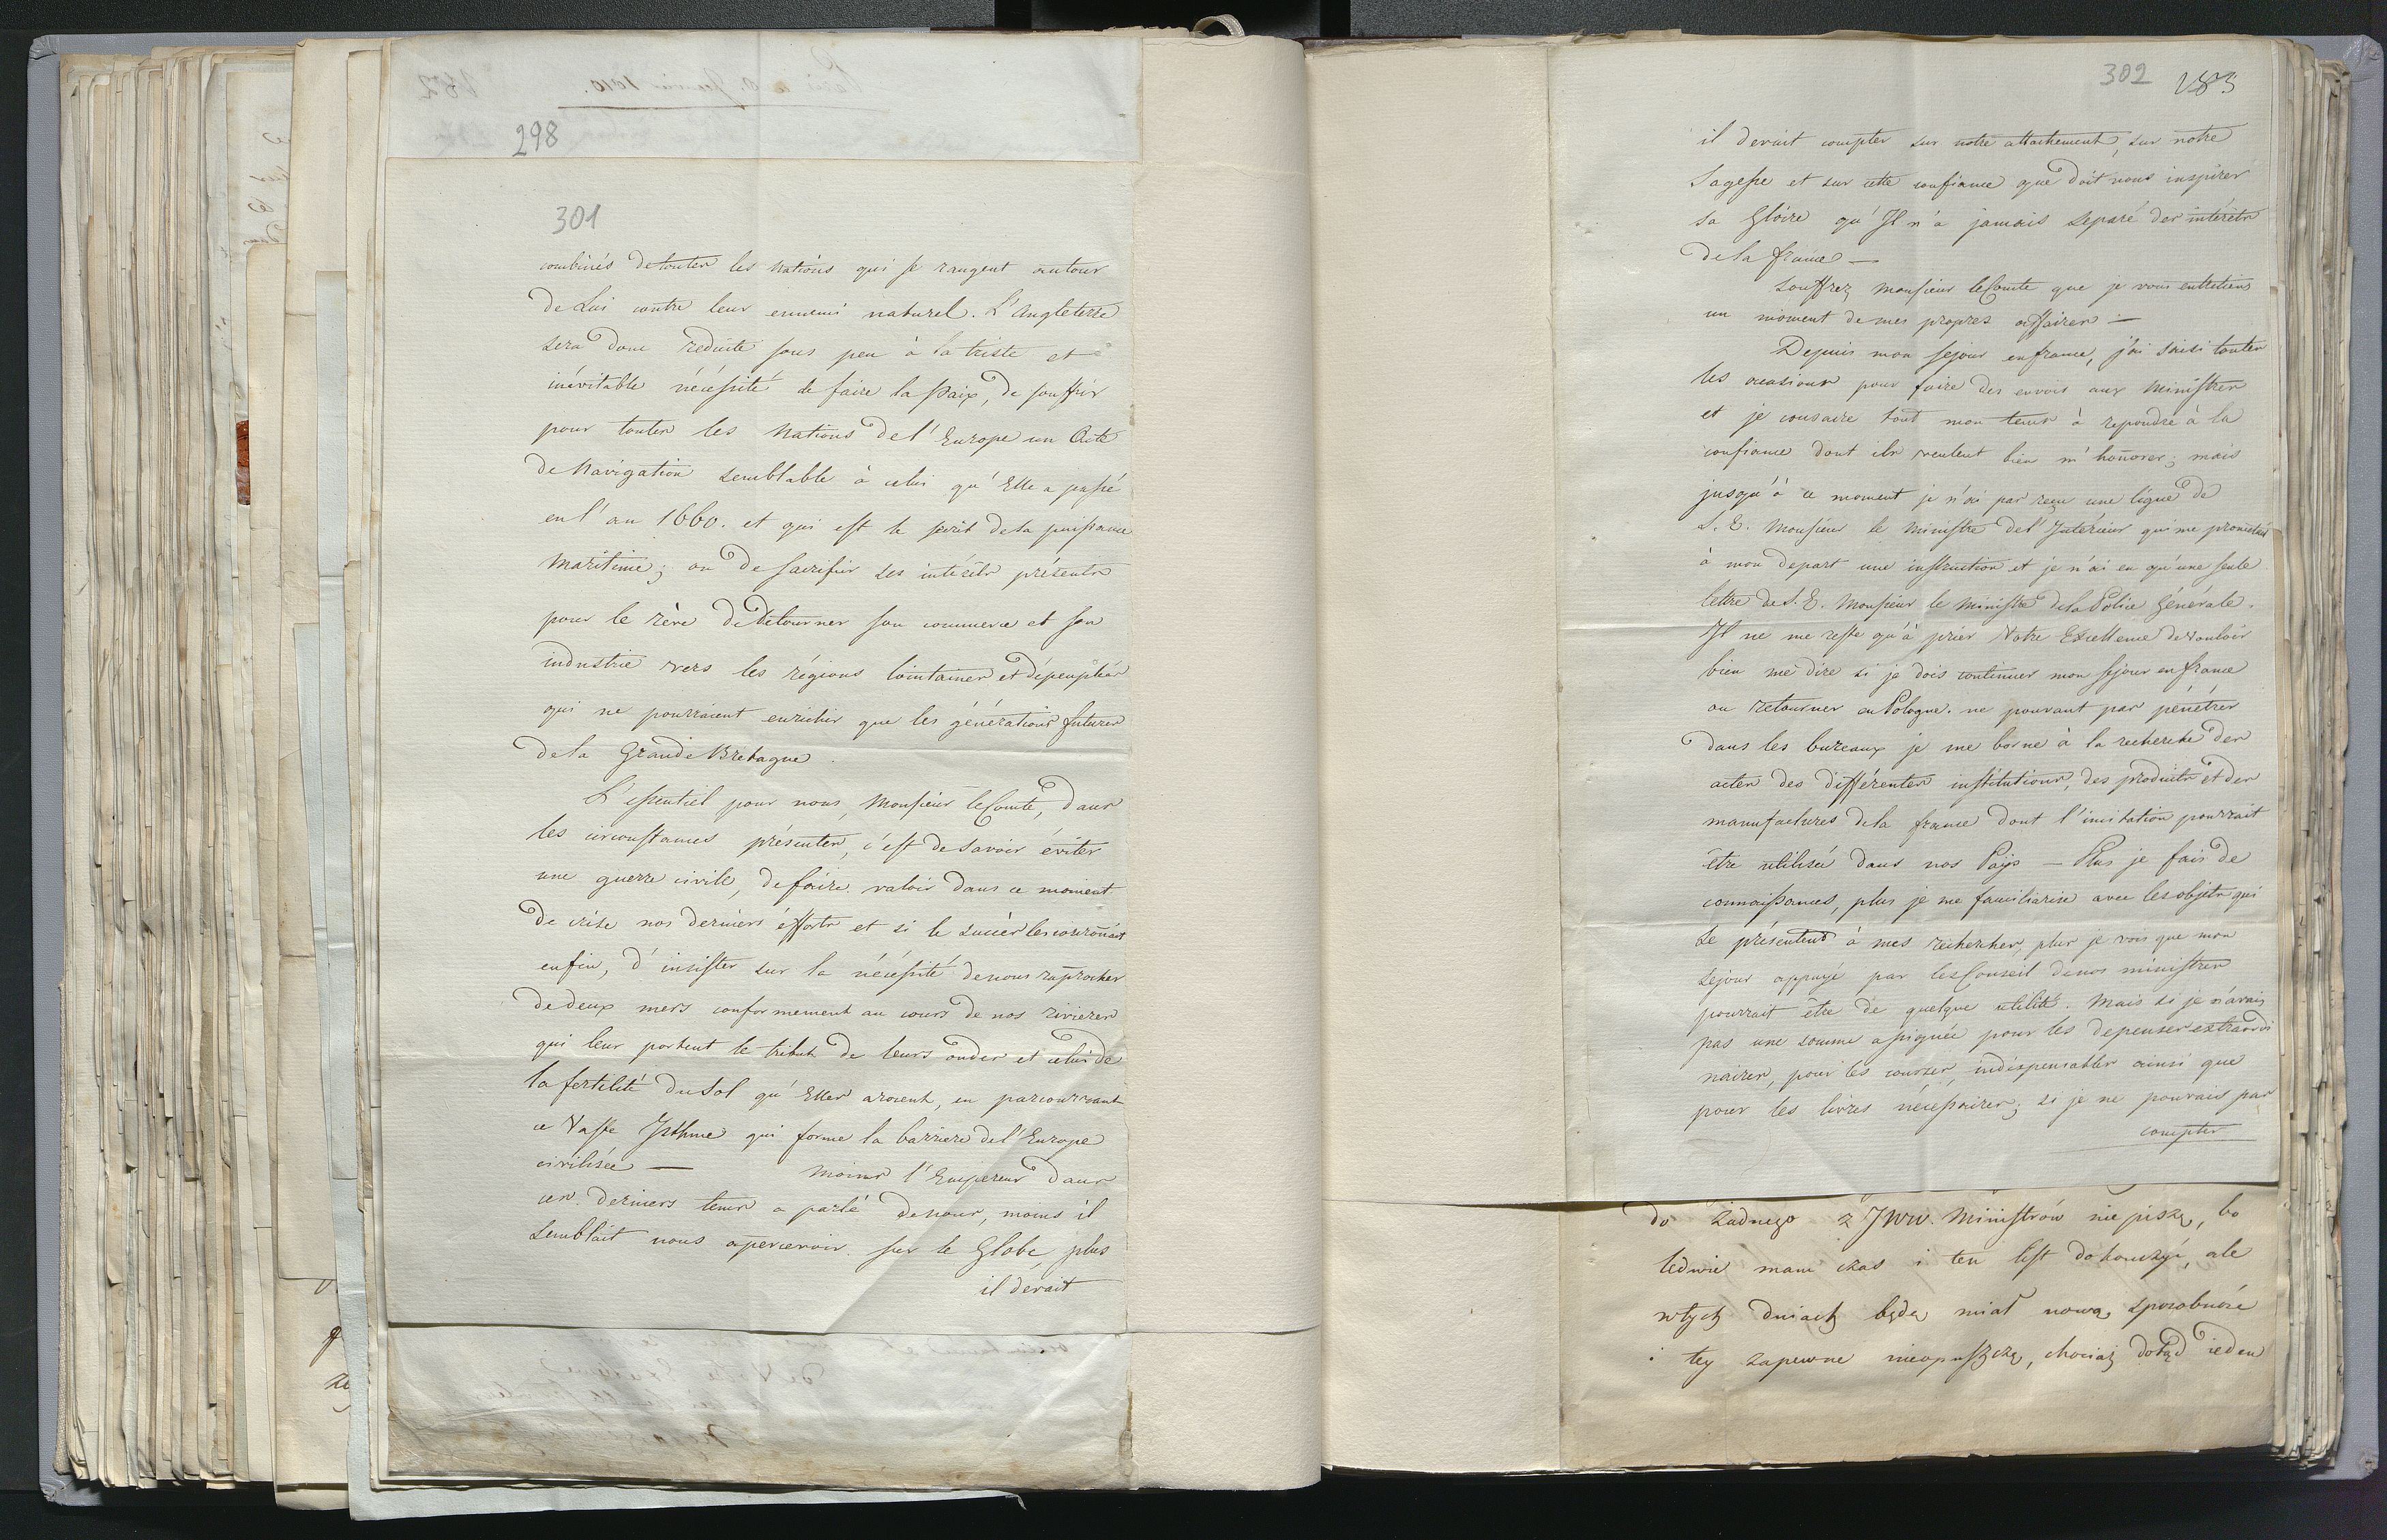 298
301
combinés de toutes les Nations qui se rangent autour
de Lui contre leur ennemi naturel. L'Angleterre
sera donc reduite sous peu à la triste et
inévitable nécessité de faire la Paix, de souffrir
pour toutes les Nations de l'Europe un Acte
de Navigation semblable à celui qu'Elle a passé
en l'an 1660. et qui est le secrêt de sa puissance
maritime; ou de sacrifier ses intérêts présents
pour le rève de détourner son commerce et son
industrie vers les régions lointaines et dépeuplées
qui ne pourraient enrichir que les générations futures
de la Grande Bretagne.
L'essentiel pour nous, Monsieur le Comte, dans
les circonstances présentes, c'est de savoir éviter
une guerre civile, de faire valoir dans ce moment
de crise nos derniers éfforts et si le succès les couronnait
enfin, d'insister sur la nécéssité de nous raprocher
de deux mers conformement au cours de nos rivieres
qui leur portent le tribut de leurs ondes et celui de
la fertilité du sol qu'Elles arosent, en parcourrant
ce Vaste Isthme qui forme la barriere de l'Europe
civilisée — Moins l'Empereur dans
ces derniers tems a parlé de nous, moins il
semblait nous apercevoir sur le Globe, plus
il devait
302 183
il devait compter sur notre attachement, sur notre
Sagesse et sur cette confiance que doit nous inspirer
sa Gloire qu'Il n'a jamais separé des intérêts
de la france —
Souffrez Monsieur le Comte que je vous entretiens
un moment de mes propres affaires —
Depuis mon sejour en france, j'ai saisi toutes
les occasions pour faire des envois aux Ministres
et je consacre tout mon tems à repondre à la
confiance dont ils veulent bien m'honorer; mais
jusqu'à ce moment je n'ai pas reçu une ligne de
S. E. Monsieur le Ministre de l'Intérieur qui me promettait
à mon depart une instruction et je n'ai eu qu'une seule
lettre de S. E. Monsieur le Ministre de la Police Générale.
Il ne me reste qu'à prier Votre Excellence de vouloir
bien me dire si je dois continuer mon sejour en france
ou retourner en Pologne. ne pouvant pas pénétrer
dans les bureaux je me borne à la recherche des
actes des différentes institutions, des produits et des
manufactures de la france dont l'imitation pourrait
être utilisée dans nos Pays — Plus je fais de
connaissances, plus je me familiarise avec les objets qui
se présentent à mes recherches, plus je vois que mon
sejour appuyé par les Conseil de nos ministres
pourrait être de quelque utilité. Mais si je n'avais
pas une somme assignée pour les depenses extraordi
naires, pour les courses indispensables ainsi que
pour les livres nécessaires; si je ne pouvais pas
compter
do żadnego z JWW. Ministrów nie piszę, bo
ledwie mam czas i ten list dokończyć, ale
w tych dniach będę miał nową sposobność
i tey zapewne nieopuszczę, chociaż dotąd ieden